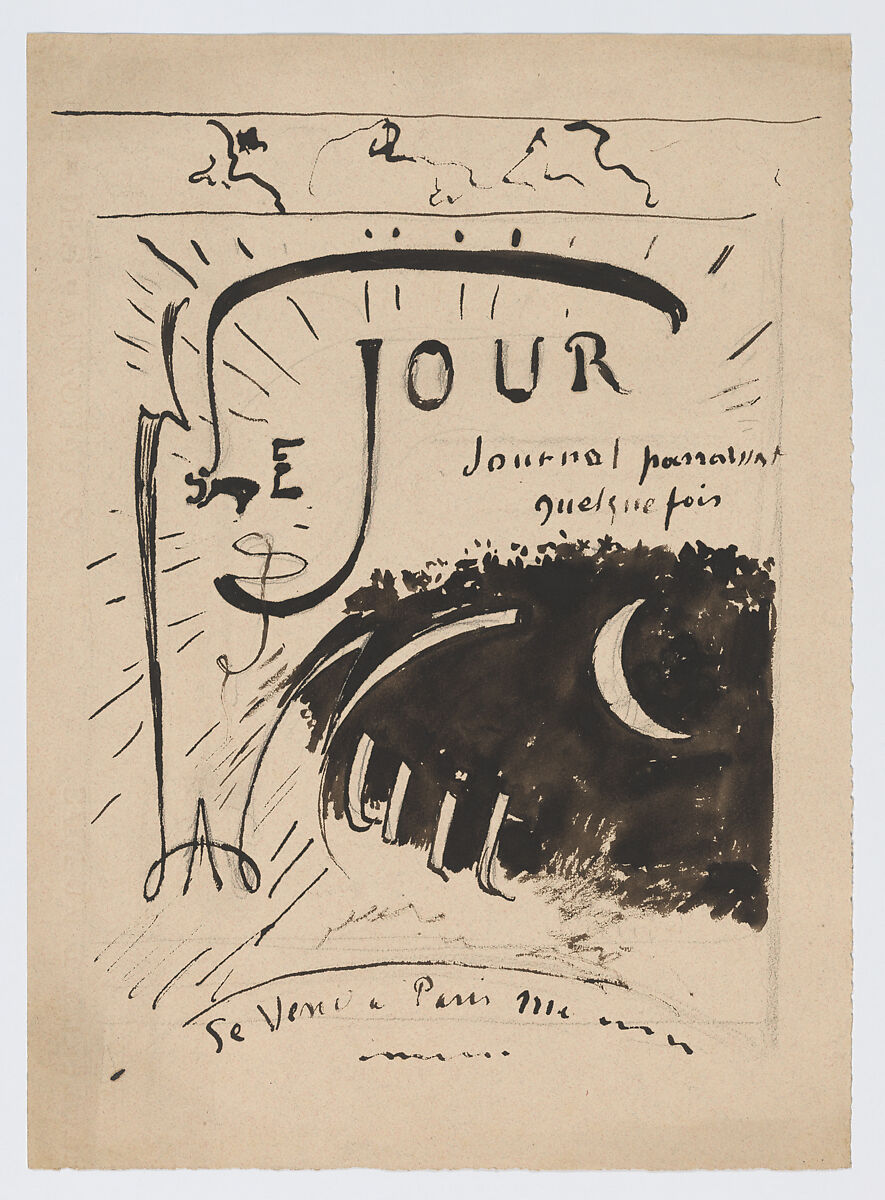 JOUR
Journal paraissant
quelque fois
Se Vend a Paris